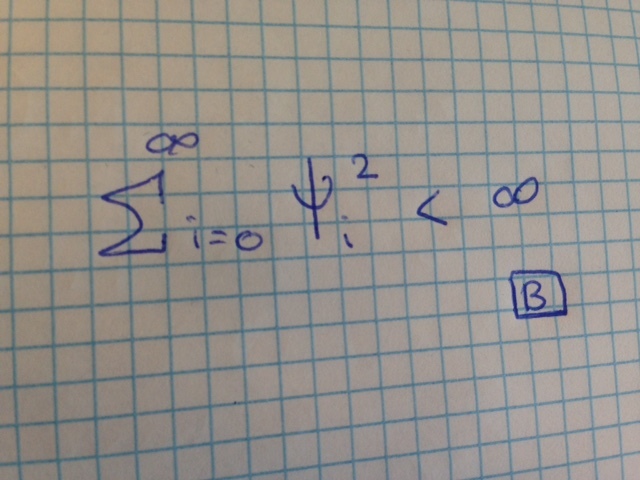 ∑_{i=0}^{∞} ψ_i^2 < ∞
B